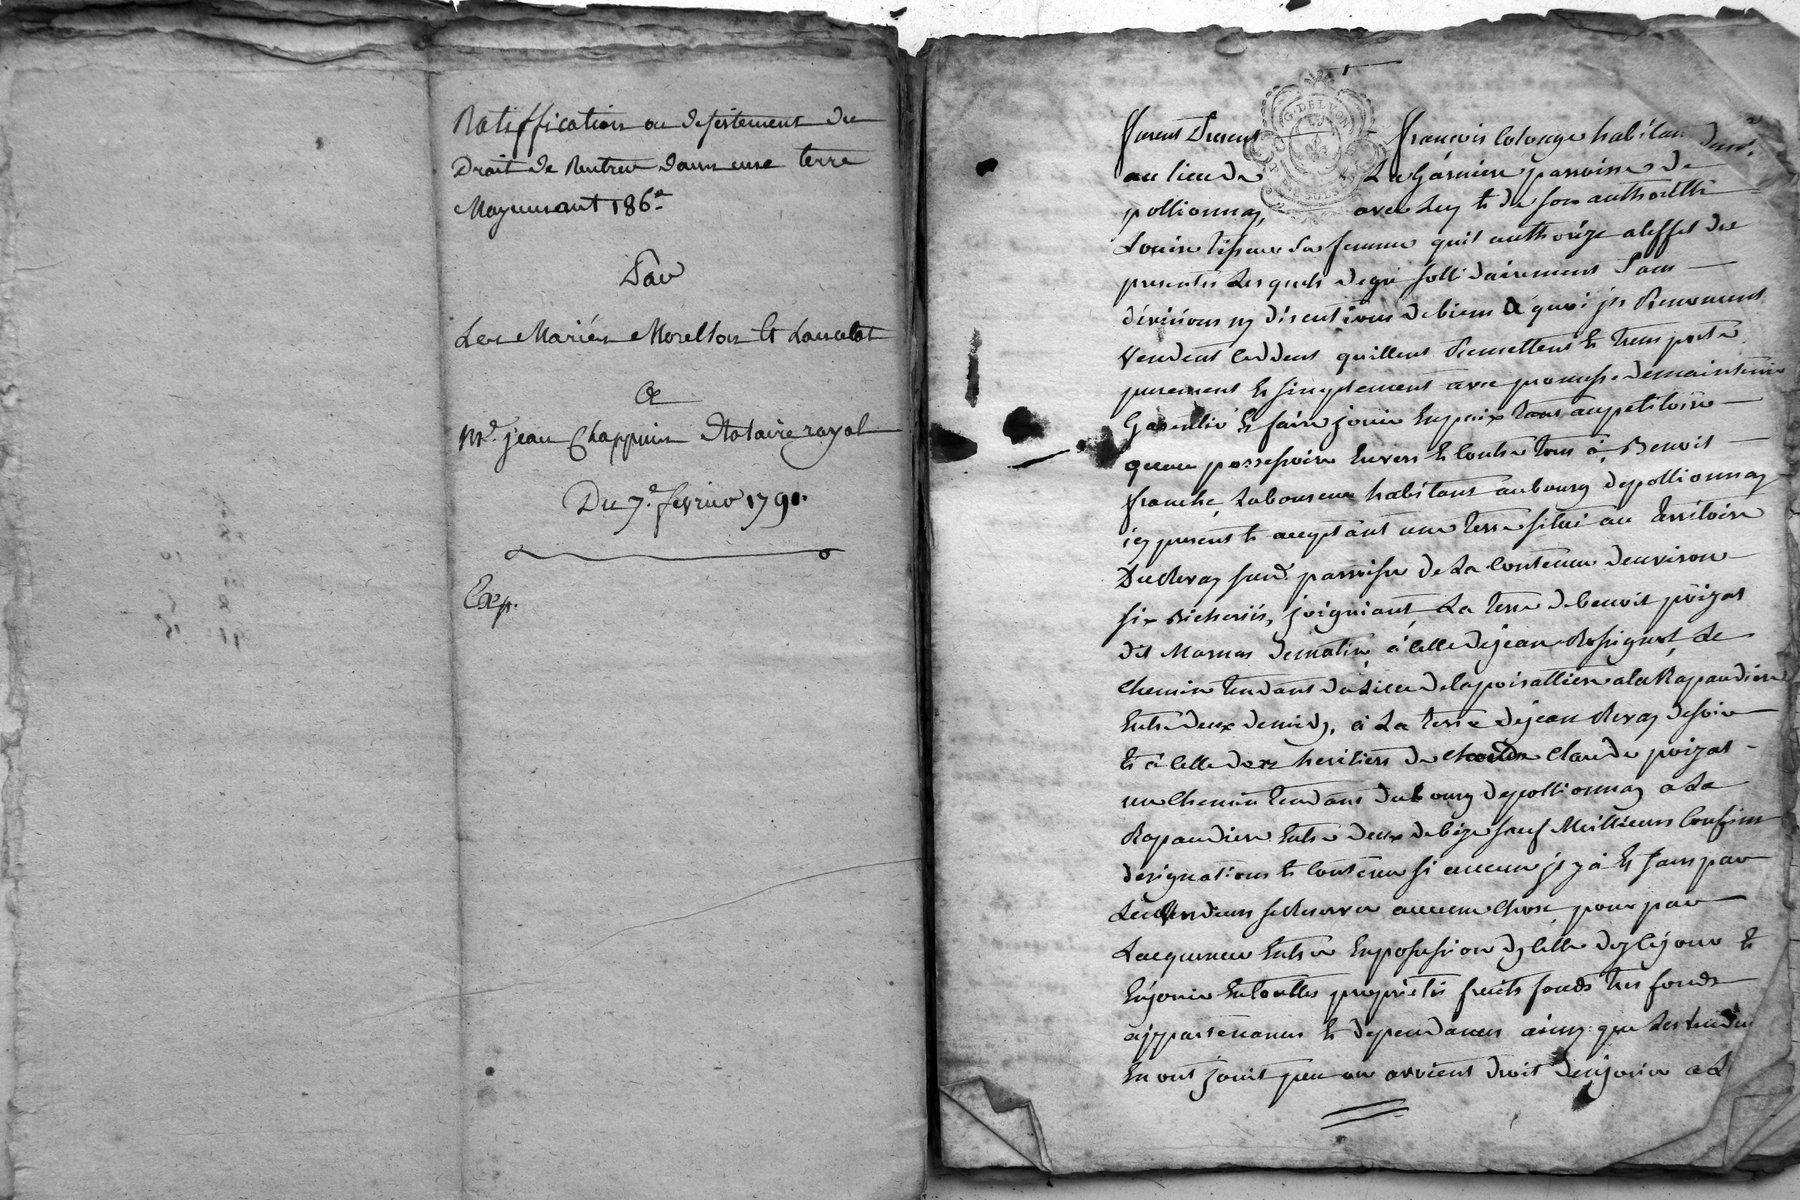 Ratiffication ou desistement du
Droit de Rentrer dans une terre
Moyennant 186#
Par
Les Mariés Morellon Et
A
Me. jean Chappuis Notaire royal
Du 7e. fevrier 1791.
Exp.
1
G. DE LYON
furent Presens françois Coloange habitant
au lieu de La Garniere parroisse de
pollionnay, avec Luy et de son authoritté
Louise sa femme quil authorize a leffet des
presentes Lesquels de gré sollidairement Sans
divisions ny discutions de biens a quoi ils Renoncent
Vendent Ceddent quittent Remettent Et transporte
purement Et simplement avec promesse de maintenir
Garentir Et faire jouir En paix tant au petitoire
quau possessoire Envers Et Contre tous à Benoit
franche Laboureur habitant au bourg de pollionnay
icy present Et acceptant une terre situé au territoire
du Revay susd. parroisse de La Contenue denviron
six Bicherées, joignant La terre de benoit poizat
dit Marnas de matin, à Celle de jean Rossignol, Le
Chemin tendant du Lieu de la poirattiere a la Rapaudiere
Entre deux de midy, à La terre de jean Revay de soir
Et à Celle des heritiers de Claude poizat
un Chemin tendant du bourg de pollionnay a La
Rapaudiere Entre deux de bize sauf Meilleurs Confins
designations Et Contenue si aucune il y à Et sans par
Les Vendeurs se Reserver aucune Chose, pour par
Lacquereur Entrer En possession dycelle dez Ce jour Et
En jouir En touttes proprietés fruits fonds tres fonds
appartenances Et dependances ainsy que Les Vendeurs
En ont jouit peu ou avoient droit den jouir a L